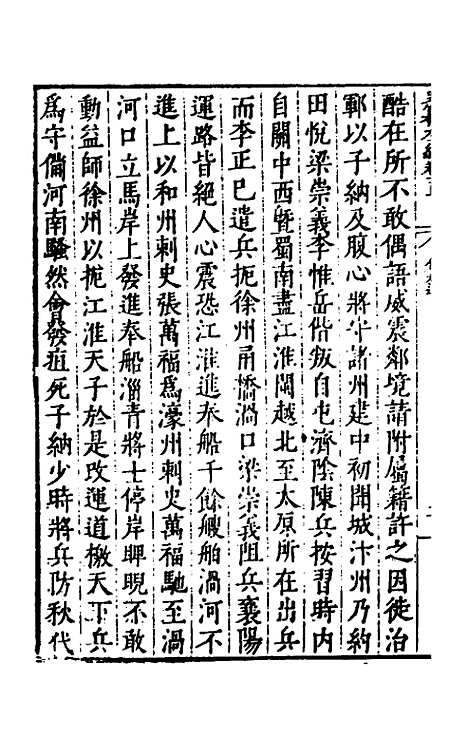 酷在所不敢偶語威震鄰境請附屬籍許之因徙治
鄆以子納及腹心將守諸州建中初聞城汴州乃約
田悅梁崇義李惟岳偕叛自屯濟陰陳兵按習時内
自關中西暨蜀南盡江淮閩越北至太原所在出兵
而李正已遣兵扼徐州甬橋渦口梁崇義阻兵襄陽
運路皆絕人心震恐江淮進奉船千餘艘舶渦河不
進上以和州刺史張萬福爲濠州刺史萬福馳至渦
河口立馬岸上發進奉船淄青將士停岸睥睨不敢
動益師徐州以扼江淮天子於是改運道檄天下兵
爲守備河南騷然會發疽死子納少時將兵防秋代